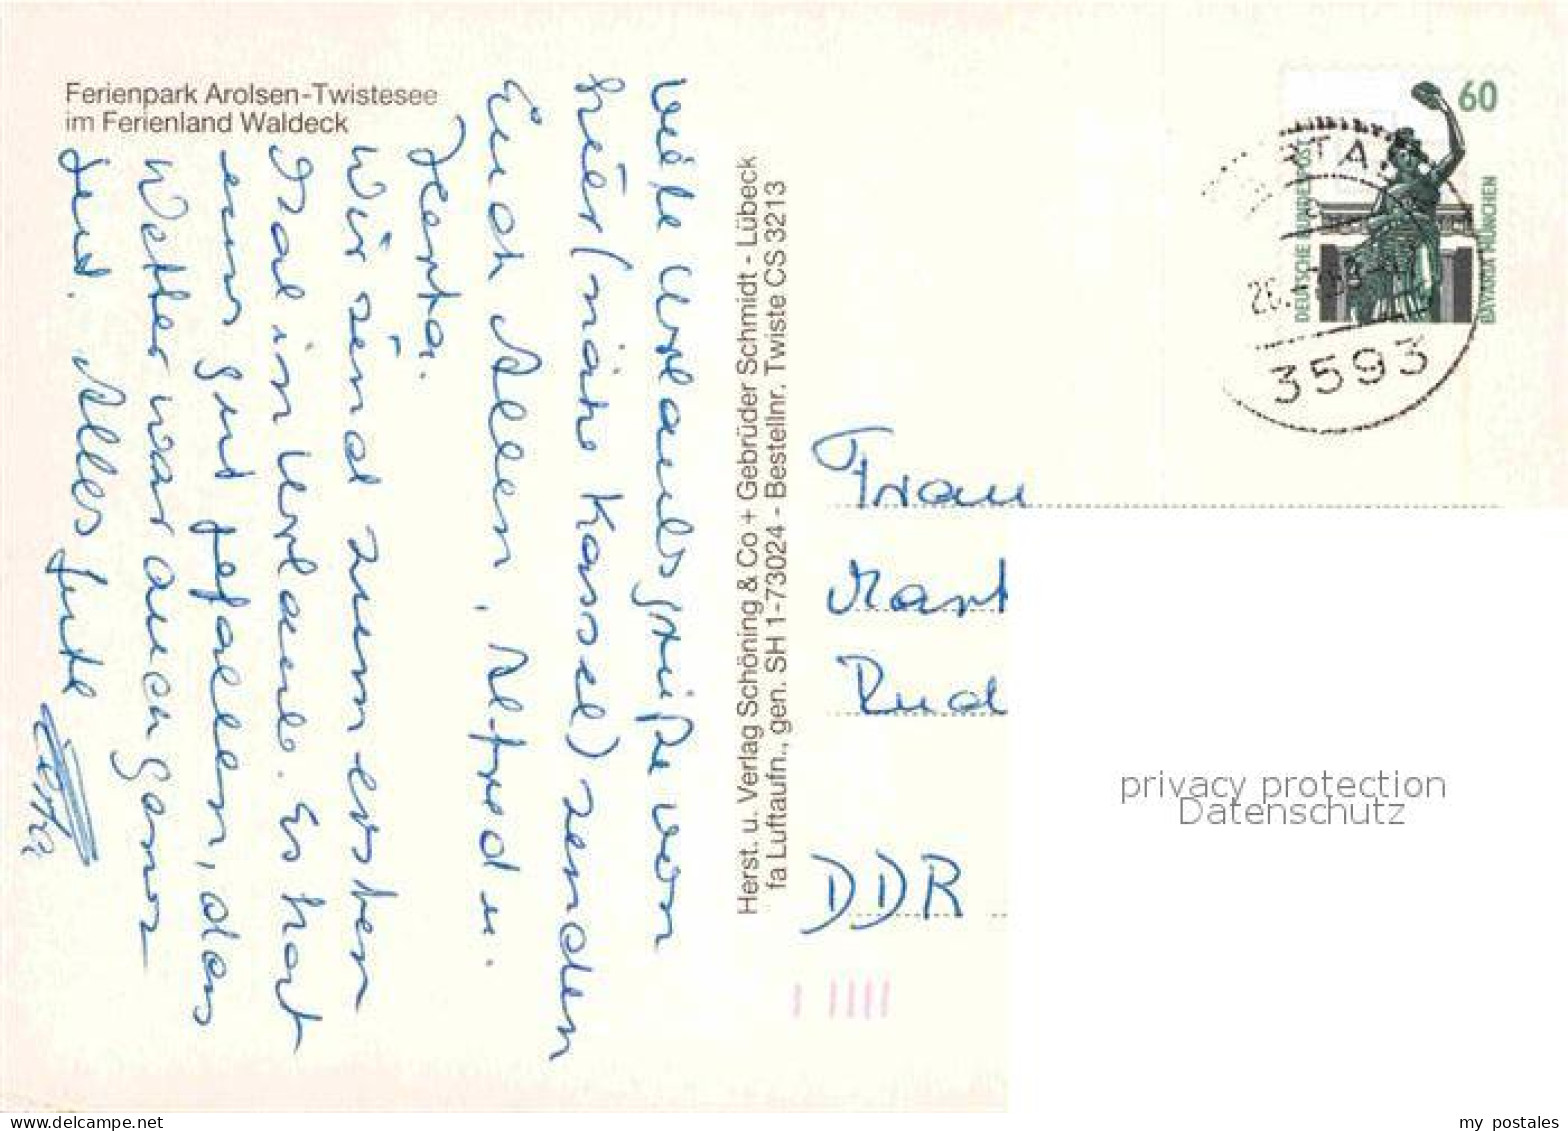 Ferienpark Arolsen-Twistesee
im Ferienland Waldeck
viele Urlaubsgrüße von
hier (nähe Kassel) senden
Euch Allen, Alfred u.
Herta.
Wir sind zum ersten
Mal in Urlaub. Es hat
uns gut gefallen, das
Wetter war auch ganz
gut. Alles gute
Herst. u. Verlag Schöning & Co + Gebrüder Schmidt - Lübeck
fa Luftaufn., gen. SH 1-73024 - Bestellnr. Twiste CS 3213
60
DEUTSCHE BUNDESPOST
BAVARIA MÜNCHEN
3593
Frau
Mart
Rud
DDR
privacy protection
Datenschutz
delcampe.net
my_postales